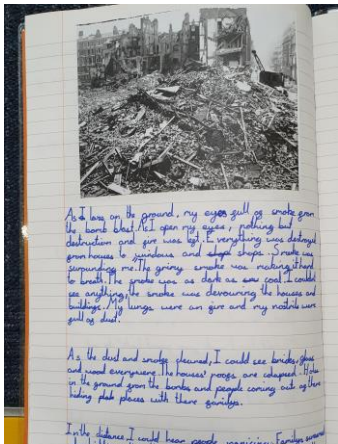 As I layed on the ground, my eyes full of smoke from
the bomb blast. As I open my eyes, nothing but
destruction and fire was left. Everything was destroyed
from houses to windows and shops. Smoke was
surrounding me. The grimy smoke was making it hard
to breath. The smoke was as dark as coal. I couldn't
see anything, the smoke was devouring the houses and
buildings. My lungs were on fire and my nostrils were
full of dust.
As the dust and smoke cleared, I could see bricks, glass
and wood everywhere. The houses' roofs are colapsed. Holes
in the ground from the bombs and people coming out of there
hiding places with there familys.
In the distance, I could hear people